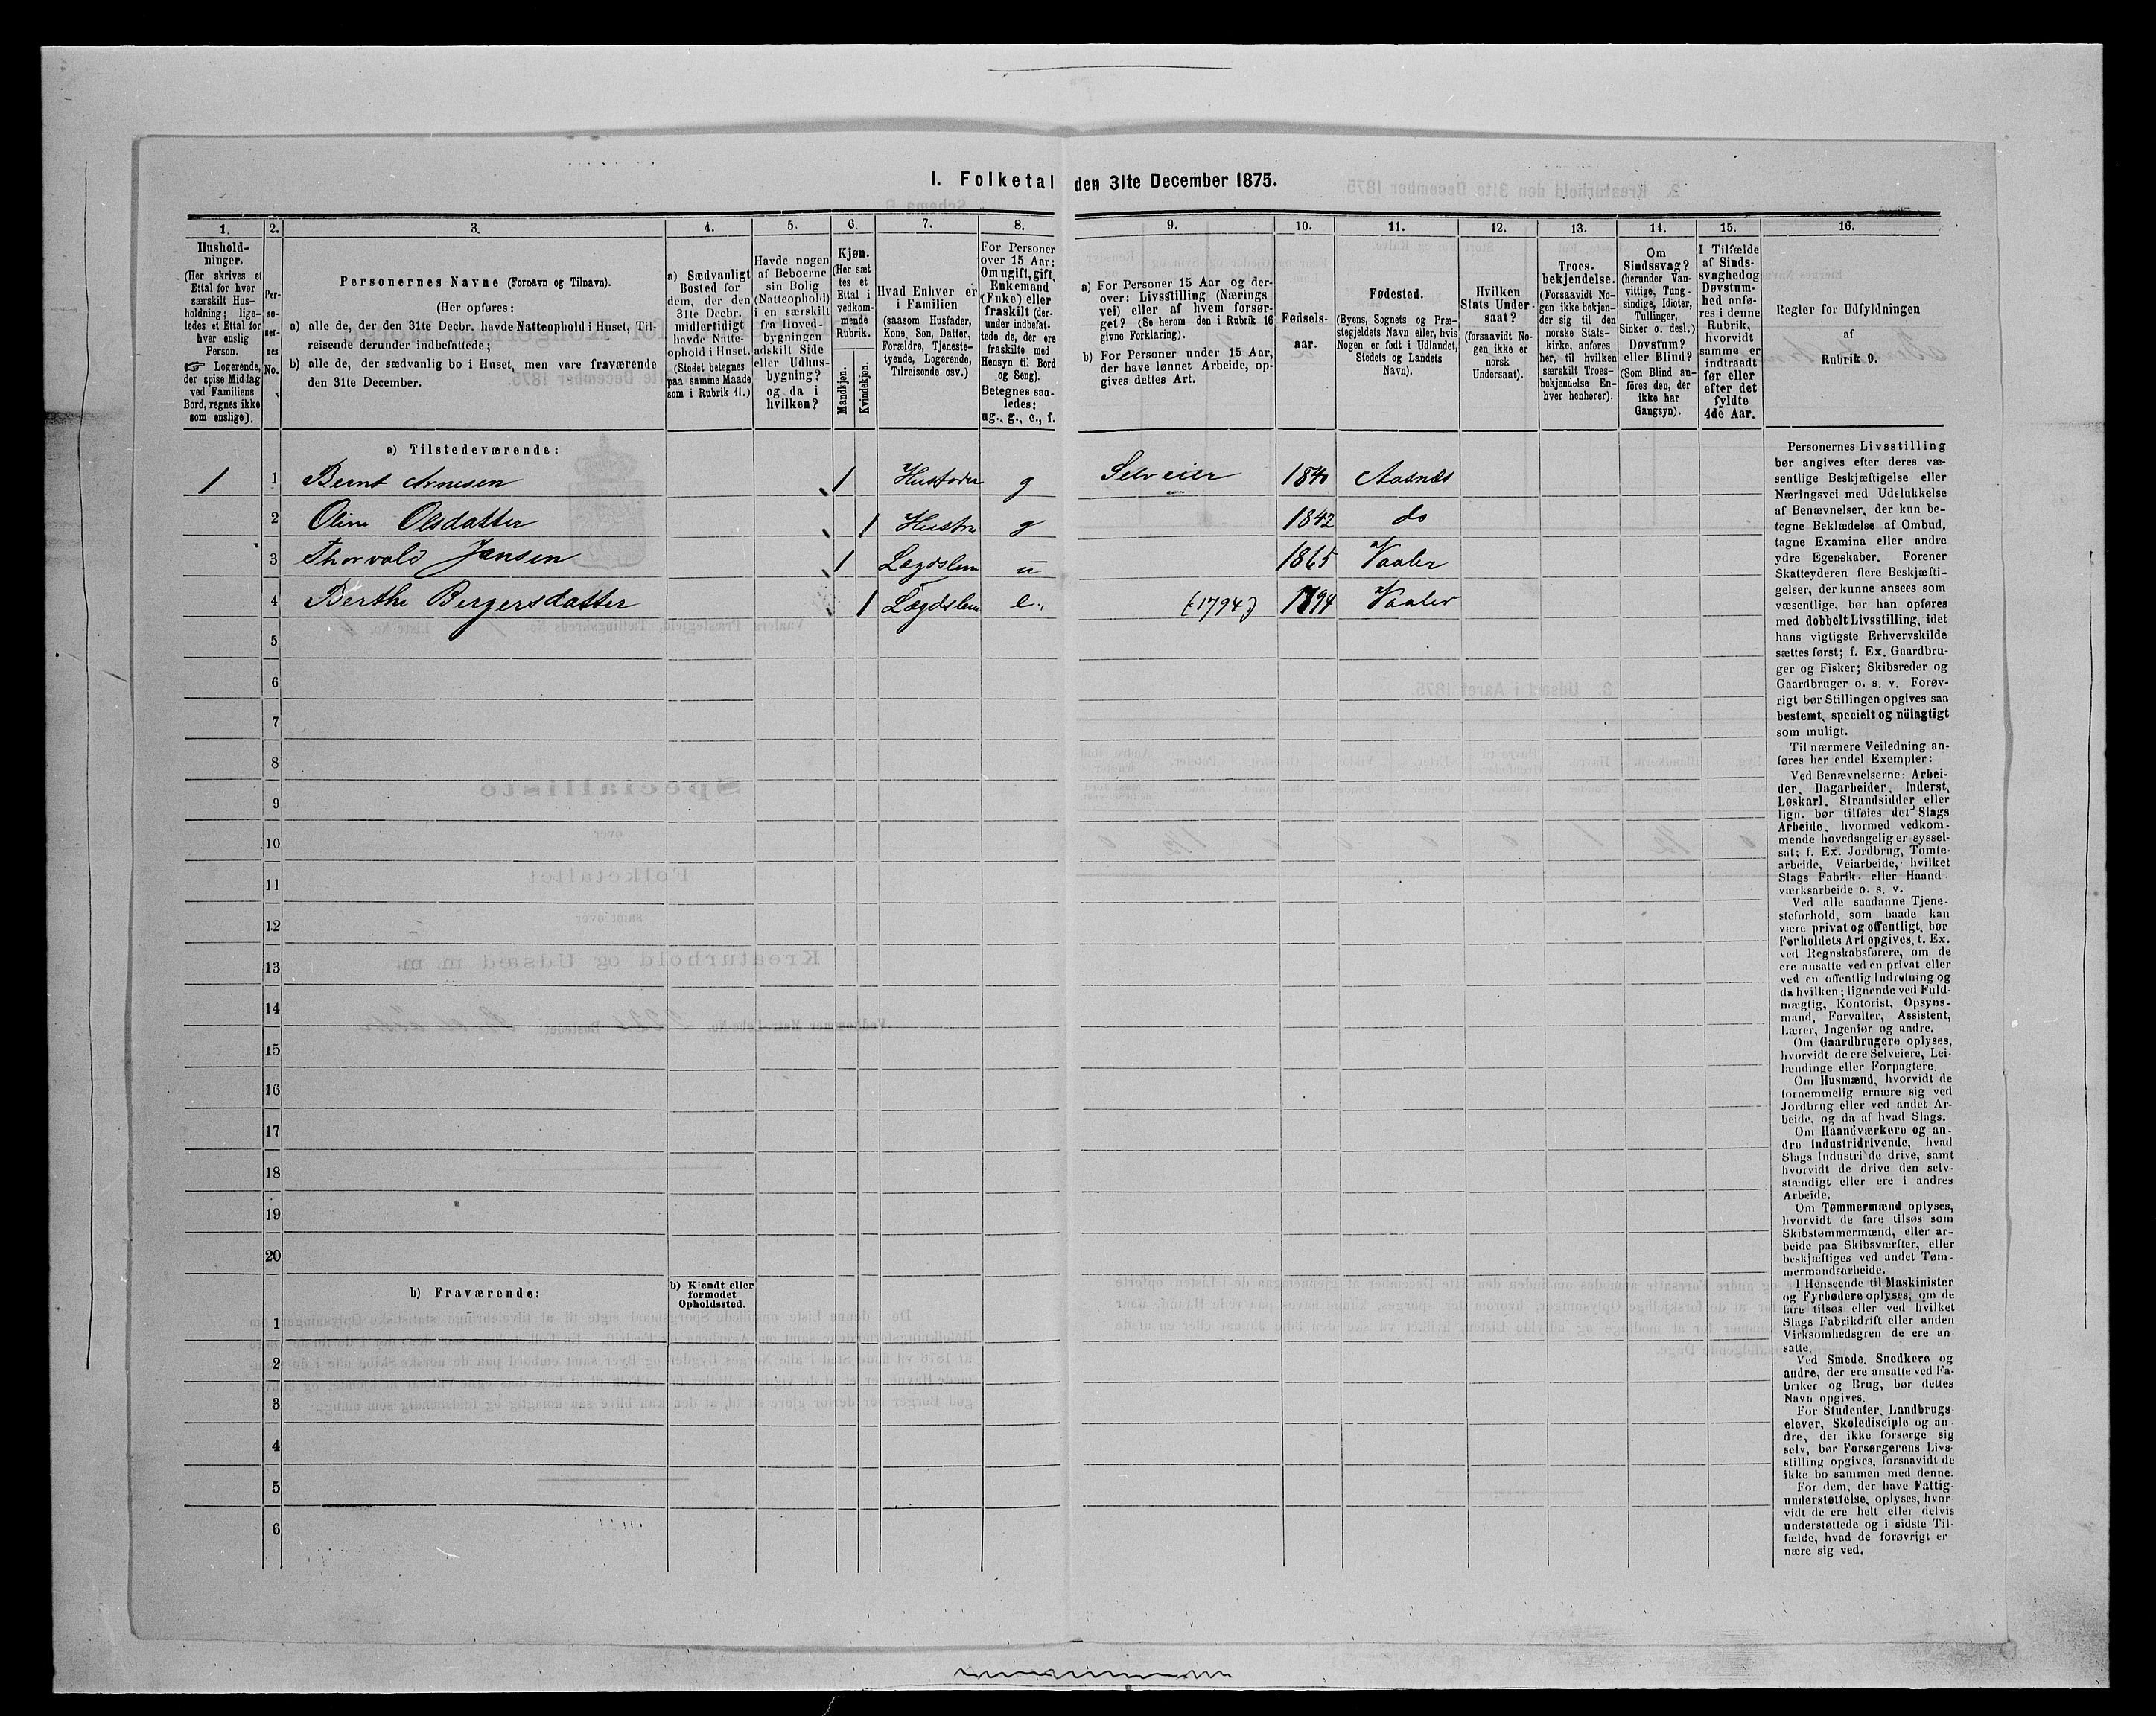 I. Folketal den 31te December 1875.
1. 2. 3. 4. 5. 6. 7. 8. 9. 10. 11. 12. 13. 14. 15. 16.
Hushold-
ninger.
(Her skrives et
Ettal for hver
særskilt Hus-
holdning; lige-
ledes et Ettal for
hver enslig
Person.
☞ Logerende,
der spise Middag
ved Familiens
Bord, regnes ikke
som enslige).
Per-
so-
ner-
nes
No.
Personernes Navne (Fornavn og Tilnavn).
(Her opføres:
a) alle de, der den 31te Decbr. havde Natteophold i Huset, Til-
reisende derunder indbefattede;
b) alle de, der sædvanlig bo i Huset, men vare fraværende
den 31te December.
a) Sædvanligt
Bosted for
dem, der den
31te Decbr.
midlertidigt
havde Natte-
ophold i Huset.
(Stedet betegnes
paa samme Maade
som i Rubrik 11.)
Havde nogen
af Beboerne
sin Bolig
(Natteophold)
i en særskilt
fra Hoved-
bygningen
adskilt Side
eller Udhus-
bygning?
og da i
hvilken?
Kjøn.
(Her sæt
tes et
Ettal i
vedkom-
mende
Rubrik.
Mandkjøn.
Kvindekjøn.
Hvad Enhver er
i Familien
(saasom Husfader,
Kone, Søn, Datter,
Forældre, Tjeneste-
tyende, Logerende,
Tilreisende osv.)
For Personer
over 15 Aar:
Om ugift, gift,
Enkemand
(Enke) eller
fraskilt (der-
under indbefat-
tede de, der ere
fraskilte med
Hensyn til Bord
og Seng).
Betegnes saa-
ledes:
ug., g., e., f.
a) For Personer 15 Aar og der-
over: Livsstilling (Nærings
vei) eller af hvem forsør-
get? (Se herom den i Rubrik 16
givne Forklaring).
b) For Personer under 15 Aar,
der have lønnet Arbeide, op-
gives dettes Art.
Fødsels-
aar.
Fødested.
(Byens, Sognets og Præ-
stegjeldets Navn eller, hvis
Nogen er født i Udlandet,
Stedets og Landets
Navn).
Hvilken
Stats Under-
saat?
(forsaavidt No-
gen ikke er
norsk
Undersaat).
Troes-
bekjendelse.
(Forsaavidt No-
gen ikke bekjen-
der sig til den
norske Stats-
kirke, anføres
her, til hvilken
særskilt Troes-
bekjendelse En-
hver henhører).
Om
Sindssvag?
(herunder Van-
vittige, Tung-
sindige, Idioter,
Tullinger,
Sinker o. desl.)
Døvstum?
eller Blind?
(Som Blind an-
föres den, der
ikke har
Gangsyn).
I Tilfælde
af Sinds-
svaghed og
Døvstum-
hed anfø-
res i denne
Rubrik,
hvorvidt
samme er
indtraadt
før eller
efter det
fyldte
4de Aar.
Regler for Udfyldningen
af
Rubrik 9.
a) Tilstedeværende:
1 1 Bernt Arnesen 1 Husfader g Selveier 1840 Aasnes
2 Oline Olsdatter 1 Hustru g 1842 do
3 Thorvald Jansen 1 Lægdslem u 1865 Vaaler
4 Berthe Bergersdatter 1 Lægdslem e. (1794) 1794 Vaaler
5
6
7
8
9
10
11
12
13
14
15
16
17
18
19
20
b) Fraværende:
b) Kjendt eller
formodet
Opholdssted.
1
2
3
4
5
6
Personernes Livsstilling
bør angives efter deres væ-
sentlige Beskjæftigelse eller
Næringsvei med Udelukkelse
af Benævnelser, der kun be-
tegne Beklædelse af Ombud,
tagne Examina eller andre
ydre Egenskaber. Forener
Skatteyderen flere Beskjæfti-
gelser, der kunne ansees som
væsentlige, bør han opføres
med dobbelt Livsstilling, idet
hans vigtigste Erhvervskilde
sættes først; f. Ex. Gaardbru-
ger og Fisker; Skibsreder og
Gaardbruger o. s. v. Forøv-
rigt bør Stillingen opgives saa
bestemt, specielt og nöiagtigt
som muligt.
Til nærmere Veiledning an-
føres her endel Exempler:
Ved Benævnelserne: Arbei-
der, Dagarbeider, Inderst,
Løskarl, Strandsidder eller
lign. bør tilføies det Slags
Arbeide, hvormed vedkom-
mende hovedsagelig er syssel-
sat; f. Ex. Jordbrug, Tomte-
arbeide, Veiarbeide, hvilket
Slags Fabrik- eller Haand-
værksarbeide o. s. v.
Ved alle saadanne Tjene-
steforhold, som baade kan
være privat og offentligt, bør
Forholdets Art opgives, t. Ex.
ved Regnskabsførere, om de
ere ansatte ved en privat eller
ved en offentlig Indretning og
da hvilken; lignende ved Fuld-
mægtig, Kontorist, Opsyns-
mand, Forvalter, Assistent,
Lærer, Ingeniør og andre.
Om Gaardbrugere oplyses,
hvorvidt de ere Selveiere, Lei-
lændinge eller Forpagtere.
Om Husmænd, hvorvidt de
fornemmelig ernære sig ved
Jordbrug eller ved andet Ar-
beide, og da af hvad Slags.
Om Haandværkere og an-
dre Industridrivende, hvad
Slags Industri de drive, samt
hvorvidt de drive den selv-
stændigt eller ere i andres
Arbeide.
Om Tømmermænd oplyses,
hvorvidt de fare tilsøs som
Skibstømmermænd, eller ar-
beide paa Skibsværfter, eller
beskjæftiges ved andet Tøm-
mermandsarbeide.
I Henseende til Maskinister
og Fyrbødere oplyses, om de
fare tilsøs eller ved hvilket
Slags Fabrikdrift eller anden
Virksomhedsgren de ere an-
satte.
Ved Smede, Snedkere og
andre, der ere ansatte ved Fa-
briker og Brug, bør dettes
Navn opgives.
For Studenter, Landbrugs-
elever, Skoledisciple og an-
dre, der ikke forsørge sig
selv, bør Forsørgerens Livs-
stilling opgives, forsaavidt de
ikke bo sammen med denne.
For dem, der have Fattig-
understøttelse, oplyses, hvor-
vidt de ere helt eller delvis
understøttede og i sidste Til-
fælde, hvad de forøvrigt er
nære sig ved.